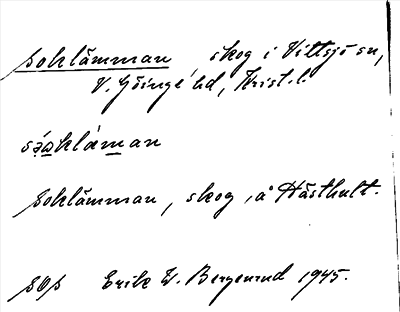 Soklämman skog i Vittsjö sn,
V. Göinge hd, Krist. l.
såakláman
Soklämman, skog, å Hästhult.
SOS Erik W. Bergenrud 1945.